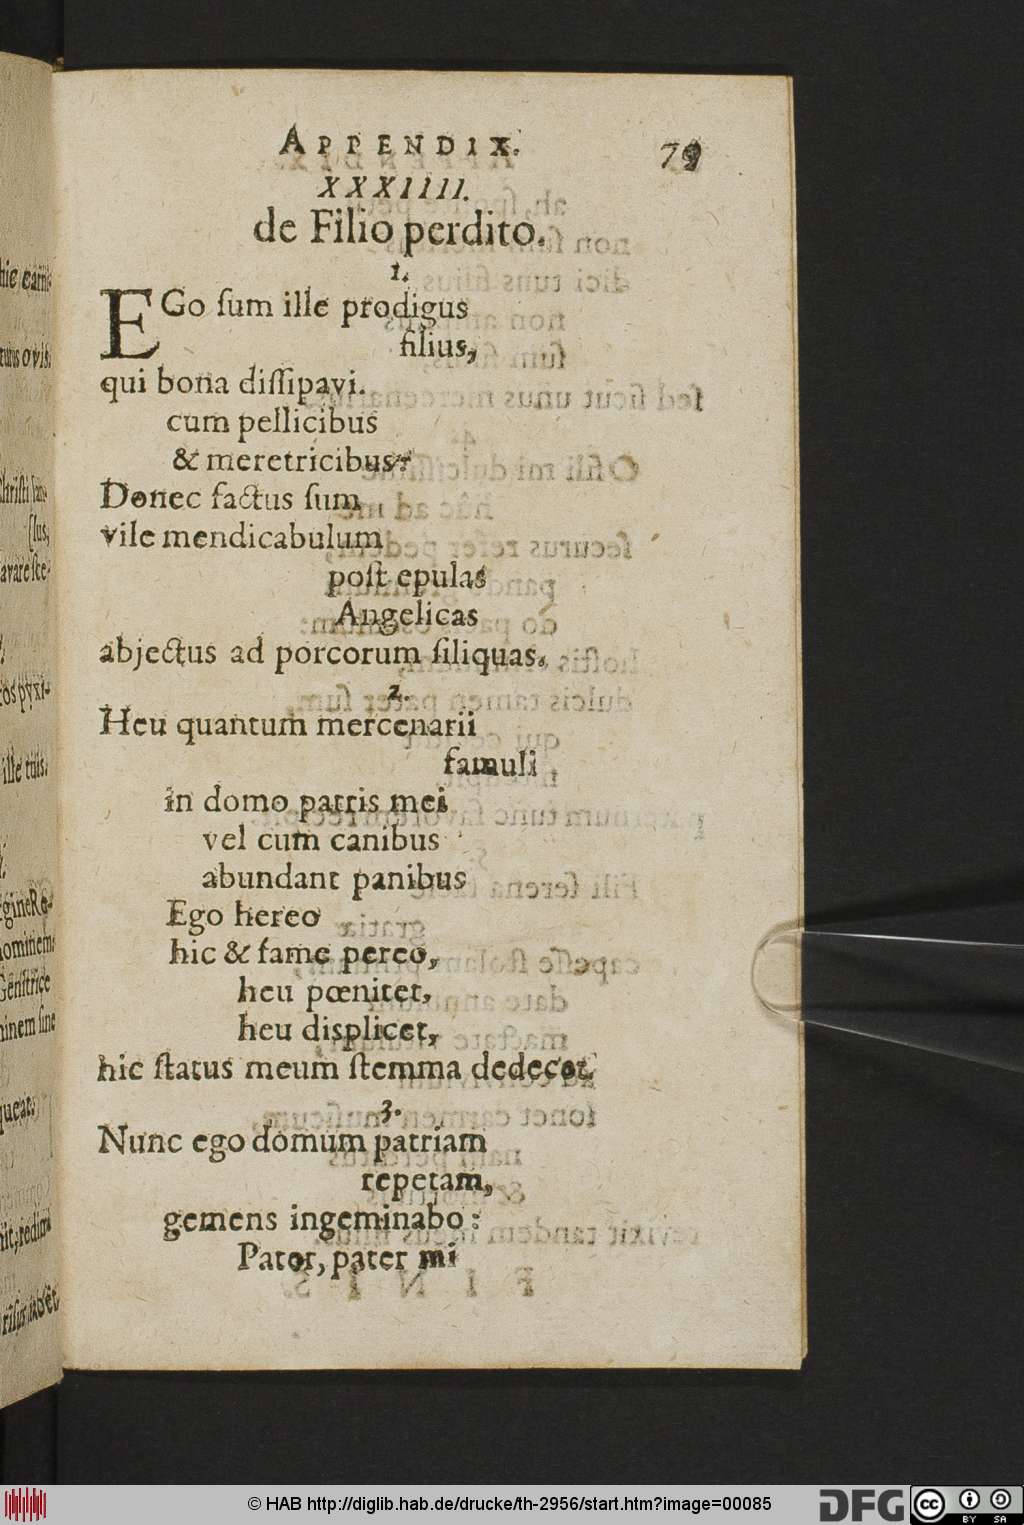 APPENDIX. 79
XXXIIII.
de Filio perdito.
1.
EGo ſum ille prodigus
filius,
qui bona diſſipavi.
cum pellicibus
& meretricibus:
Donec factus ſum
vile mendicabulum
poſt epulas
Angelicas
abjectus ad porcorum ſiliquas.
2.
Heu quantum mercenarii
famuli
in domo patris mei
vel cum canibus
abundant panibus
Ego hereo
hic & fame pereo,
heu pœnitet,
heu displicet,
hic ſtatus meum ſtemma dedecet.
3.
Nunc ego domum patriam
repetam,
gemens ingeminabo:
Pater, pater mi
© HAB http://diglib.hab.de/drucke/th-2956/start.htm?image=00085
DFG
cc BY SA